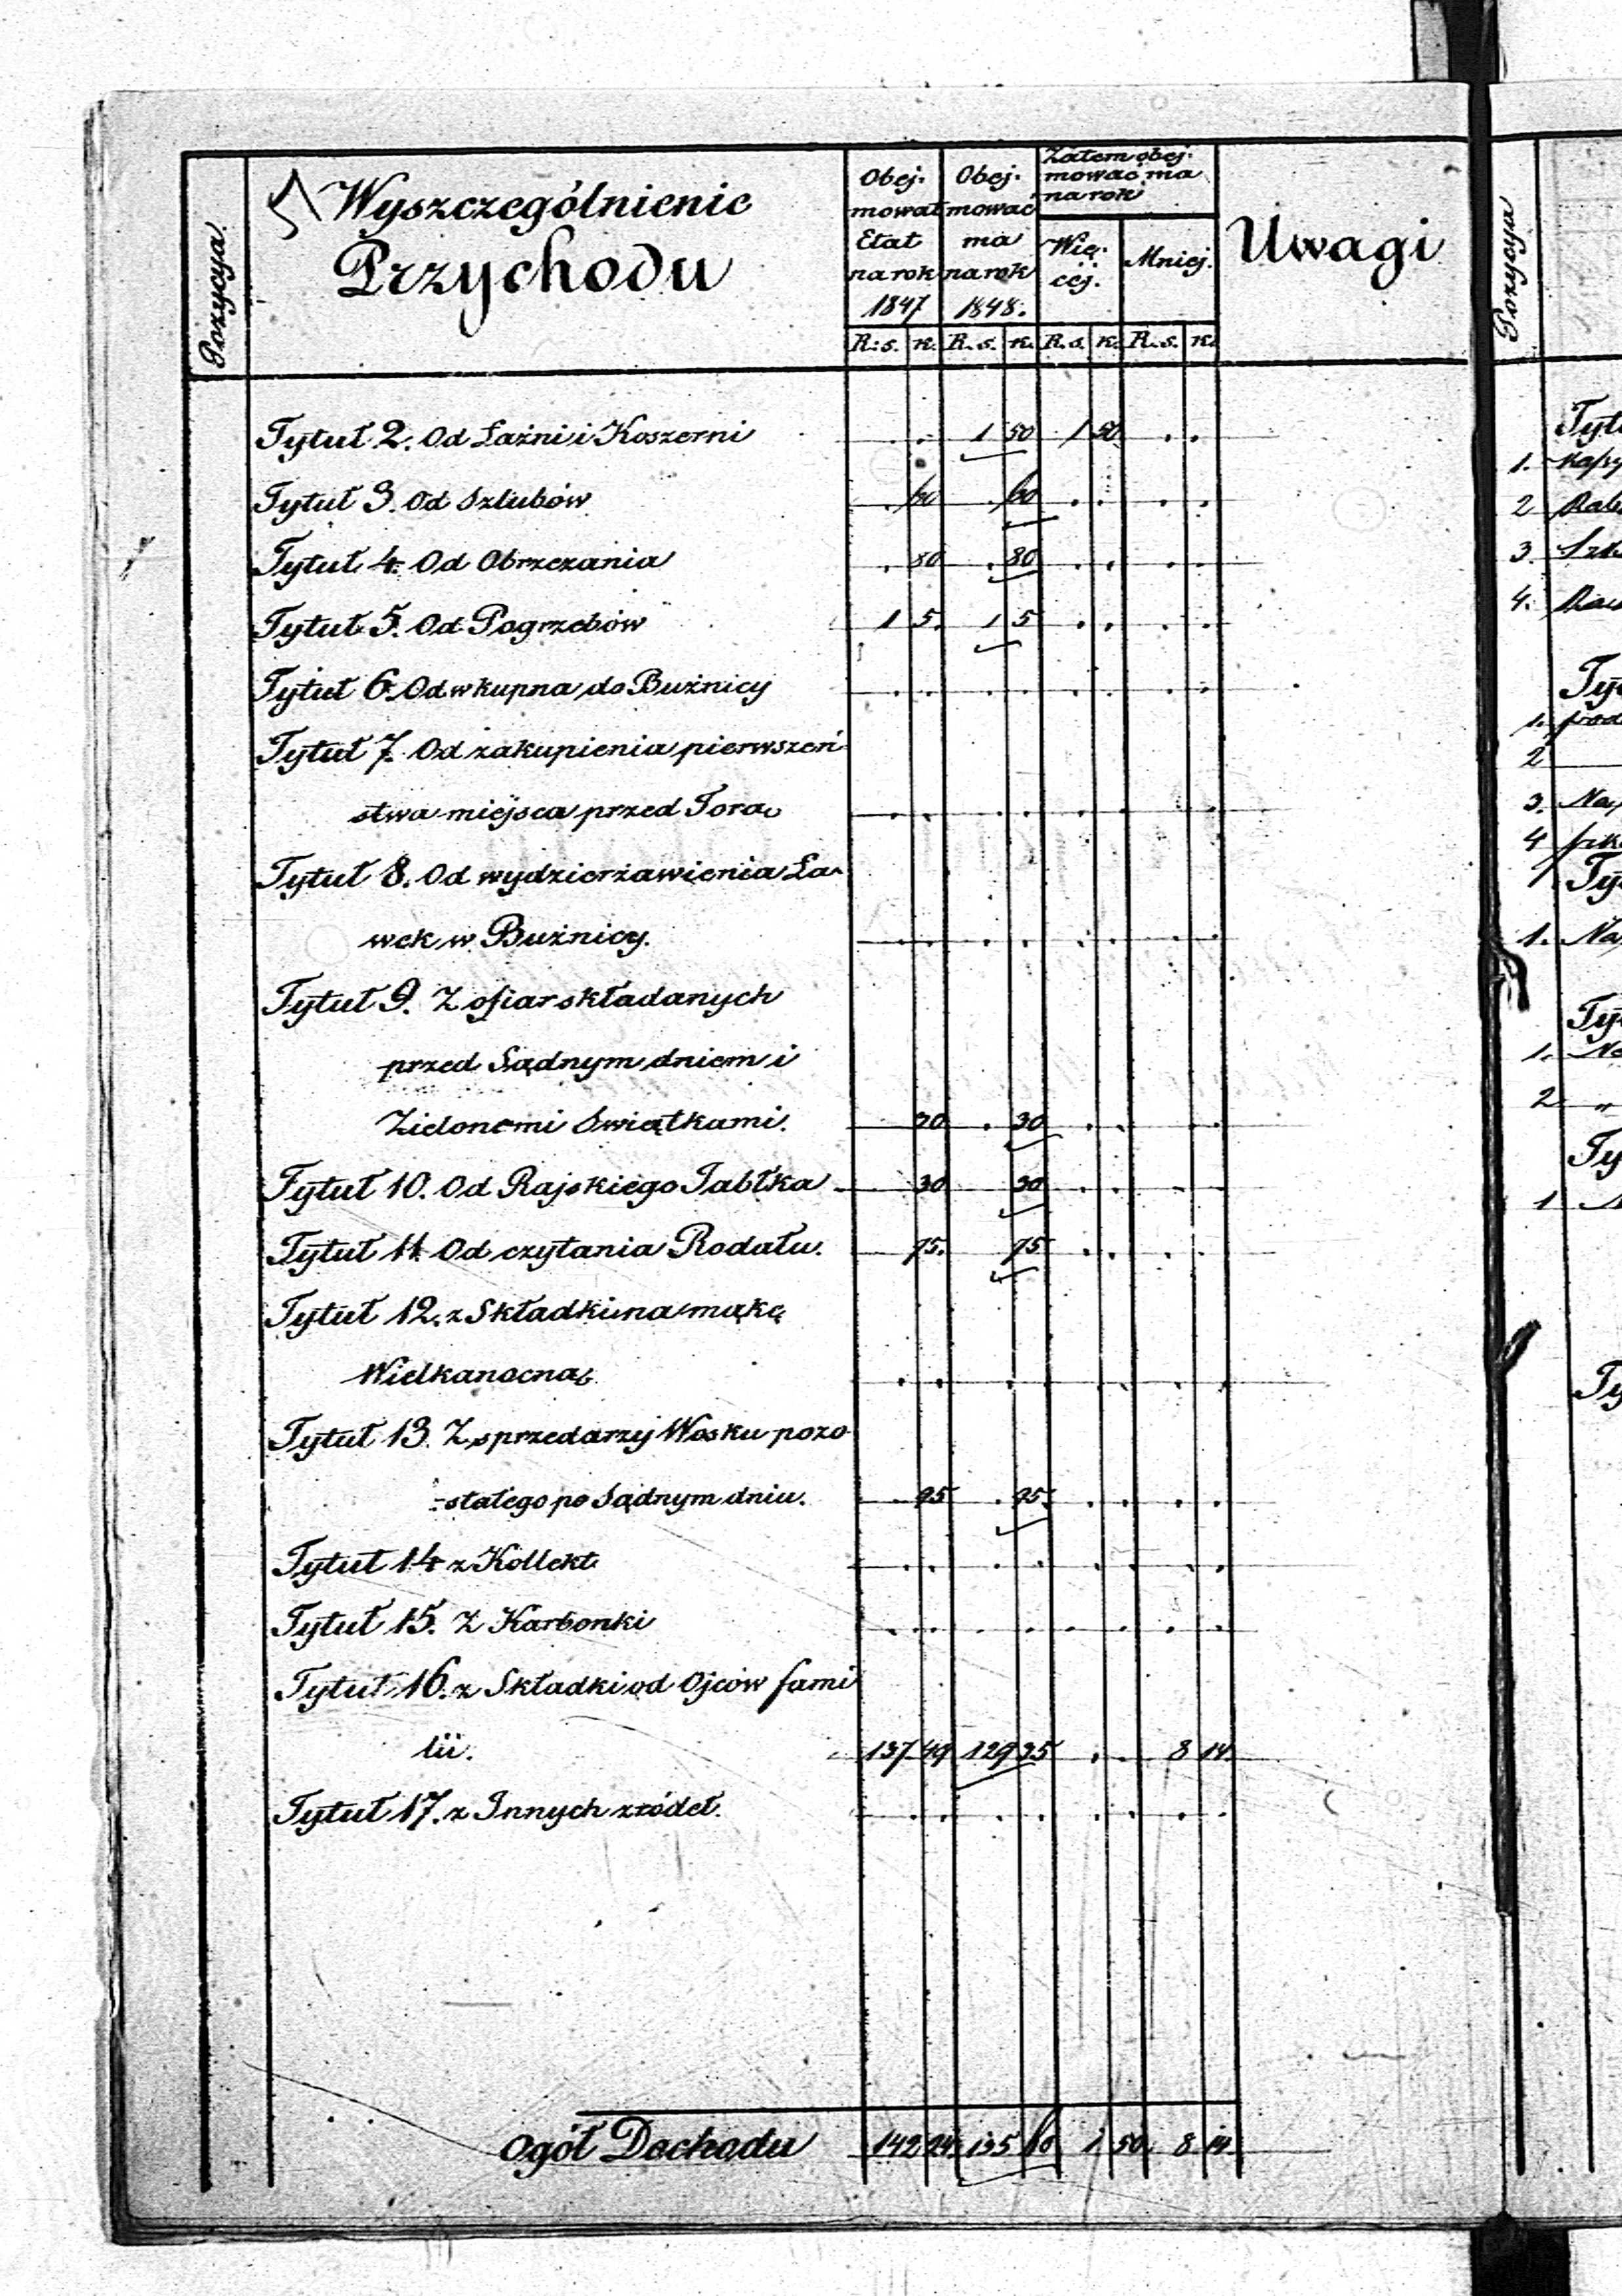 Pozycya.
Wyszczególnienie
Przychodu
Obej-
mował
Etat
na rok
1847
Obej-
mować
ma
na rok
1848.
Zatem obej-
mować ma
na rok
Wię-
cej.
Mniej.
Uwagi
R: s. k. R. s. k. R. s. k. R. s. k.
Tytuł 2. Od Łaźni i Koszerni . . 1 50 1 50 . .
Tytuł 3. Od Szlubów . 60 . 60 . . . .
Tytuł 4. Od Obrzezania . 80 . 80 . . . .
Tytuł 5. Od Pogrzebów 1 5. 1 5 . . . .
Tytuł 6. Od wkupna do Bużnicy . . . . . . . .
Tytuł 7. Od zakupienia pierwszeń-
stwa miejsca przed Torą . . . . . . . .
Tytuł 8. Od wydzierżawienia Ła-
wek w Bużnicy. . . . . . . . .
Tytuł 9. Z ofiar składanych
przed Sądnym dniem i
Zielonemi Swiątkami. 30 . 30 . . . .
Tytuł 10. Od Rajskiego Jabłka 30 30 . . . .
Tytuł 11. Od czytania Rodału. 75. 75 . . . .
Tytuł 12. z Składki na mąkę
Wielkanocną . . . . . . . .
Tytuł 13. Z sprzedarzy Wosku pozo
-stałego po Sądnym dniu. . 95 . 95. . . . .
Tytuł 14 z Kollekt . . . . . . . .
Tytuł 15. Z Karbonki . . . . . . . .
Tytuł 16. z Składki od Ojców fami
lii. 137 49 129 35 . . 8 14.
Tytuł 17. z Innych źródeł. . . . . . . . .
Ogół Dochodu 142 24. 135 60 1 50. 8 14.
Pozycya
1.
2
3.
4.
1.
2
3.
4
1.
1.
2
1